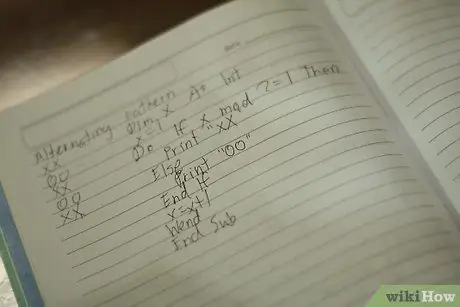 Alternating Pattern
XX
OO
XX
OO
XX
Dim X As Int
X=1
Do If X mod 2=1 Then
Print "XX
Else
Print "OO"
End If
X=X+1
Wend
End Sub
wikiHow